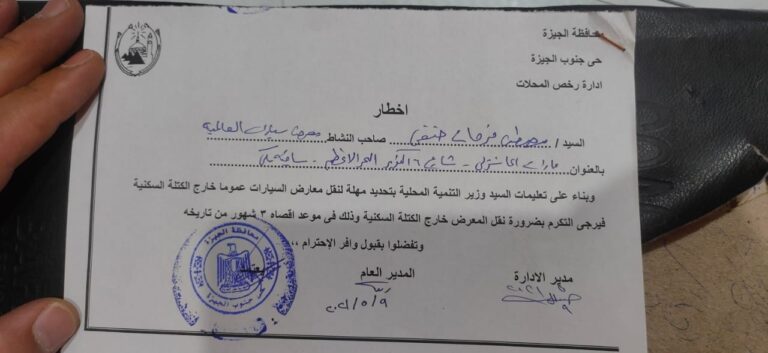 محافظة الجيزة
حى جنوب الجيزة
ادارة رخص المحلات
اخطار
السيد / مصطفى فرحات حنفى صاحب النشاط معرض سيارات العالمية
بالعنوان شارع ٦ اكتوبر البحر الاعظم - ساقية مكى
وبناء على تعليمات السيد وزير التنمية المحلية بتحديد مهلة لنقل معارض السيارات عموما خارج الكتلة السكنية
فيرجى التكرم بضرورة نقل المعرض خارج الكتلة السكنية وذلك فى موعد اقصاه ٣ شهور من تاريخه
وتفضلوا بقبول وافر الإحترام ،،
مدير الادارة
المدير العام
يعتمد
٢٠٢١/٥/٩
محافظة الجيزة
حى جنوب الجيزة